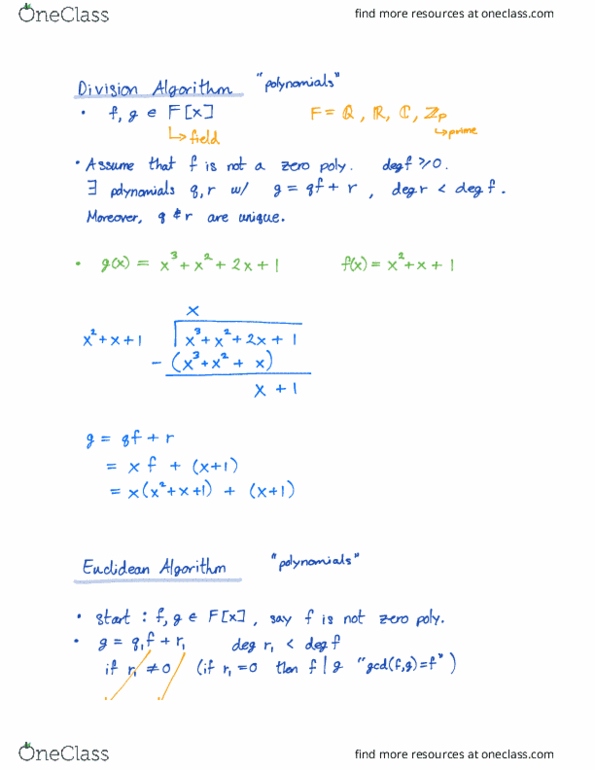 OneClass
find more resources at oneclass.com
Division Algorithm "polynomials"
• f, g ∈ F[x] F = Q, R, C, Zp
↳ field ↳ prime
• Assume that f is not a zero poly. deg f ≥ 0.
∃ polynomials q, r w/ g = qf + r , deg r < deg f.
Moreover, q & r are unique.
• g(x) = x³ + x² + 2x + 1 f(x) = x² + x + 1
x
x² + x + 1 x³ + x² + 2x + 1
− (x³ + x² + x)
x + 1
g = qf + r
= x f + (x+1)
= x(x² + x + 1) + (x+1)
Euclidean Algorithm "polynomials"
• start : f, g ∈ F[x] , say f is not zero poly.
• g = q₁f + r₁ deg r₁ < deg f
if r₁ ≠ 0 (if r₁ = 0 then f | g "gcd(f,g)=f" )
OneClass
find more resources at oneclass.com